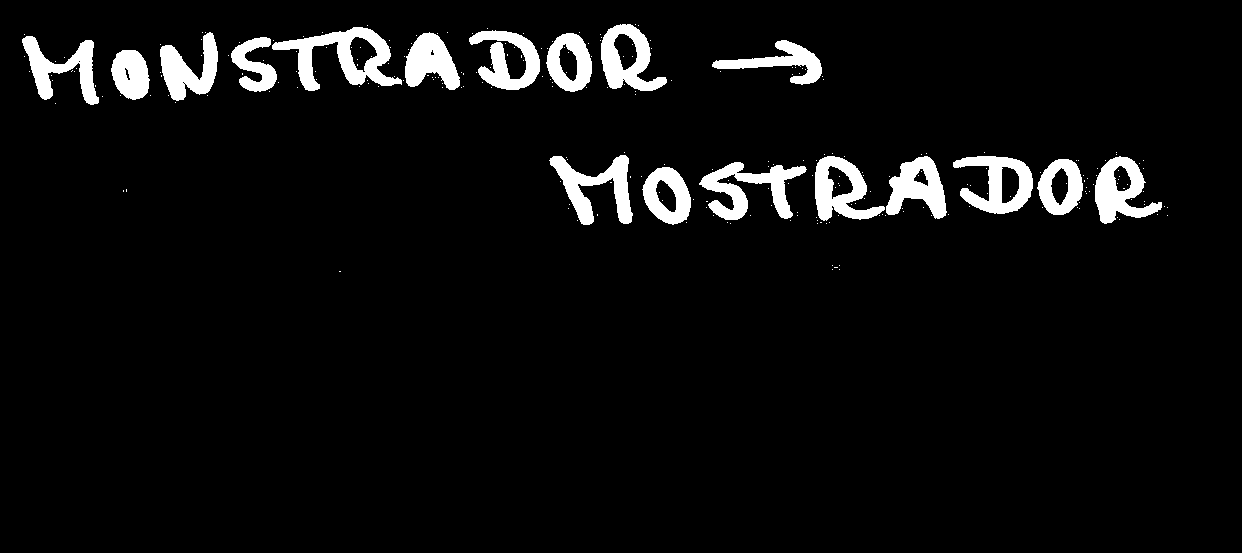 MONSTRADOR →
MOSTRADOR